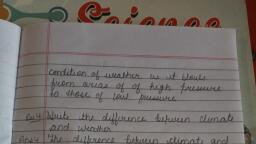 Science
condition of weather as it blows
from areas of of high pressure
to those of low pressure
Write the difference between climate
and weather
The difference between climate and